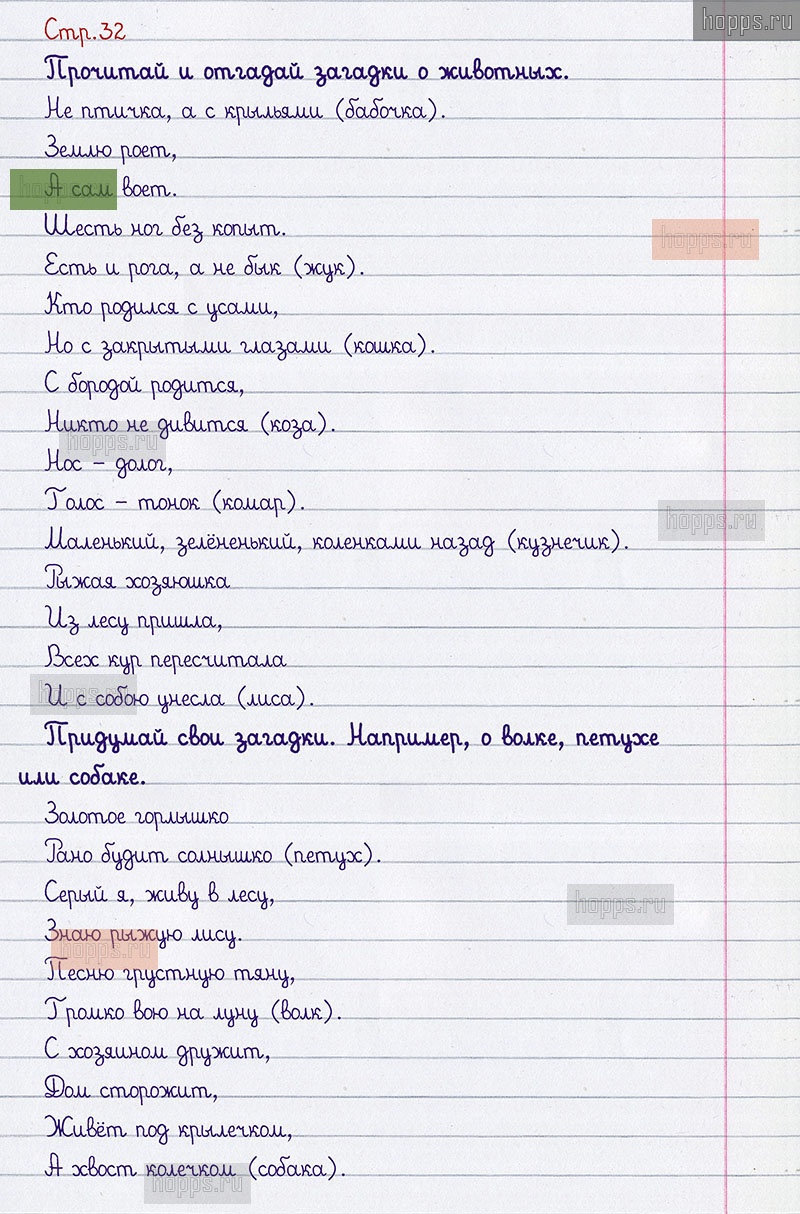 hopps.ru
Стр.32
Прочитай и отгадай загадки о животных.
Не птичка, а с крыльями (бабочка).
Землю роет,
hopps.ru
А сам воет.
Шесть ног без копыт.
hopps.ru
Есть и рога, а не бык (жук).
Кто родился с усами,
Но с закрытыми глазами (кошка).
С бородой родится,
Никто не дивится (коза).
hopps.ru
Нос – долог,
Голос – тонок (комар).
hopps.ru
Маленький, зелёненький, коленками назад (кузнечик).
Рыжая хозяюшка
Из лесу пришла,
Всех кур пересчитала
hopps.ru
И с собою унесла (лиса).
Придумай свои загадки. Например, о волке, петухе
или собаке.
Золотое горлышко
Рано будит солнышко (петух).
Серый я, живу в лесу,
hopps.ru
Знаю рыжую лису.
hopps.ru
Песню грустную тяну,
Громко вою на луну (волк).
С хозяином дружит,
Дом сторожит,
Живёт под крылечком,
А хвост колечком (собака).
hopps.ru